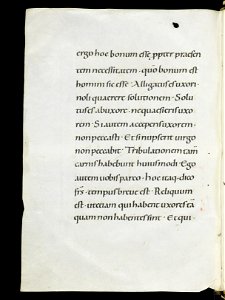 ergo hoc bonum esse ppter praesen
tem necessitatem · quo bonum est
homini sic esse · Alligatus es uxori ·
noli quaerere solutionem · Solu
tus es ab uxore · ne quaesieris uxo
rem · Si autem acceperis uxorem ·
non peccasti · Et si nupserit uirgo
non peccabit · Tribulationem tam
carnis habebunt huiusmodi · Ego
autem uobis parco · hoc itaq; dico
frs · tempus breue est · Reliquum
est · ut et iam qui habent uxores ta
quam non habentes sint · Et qui ·